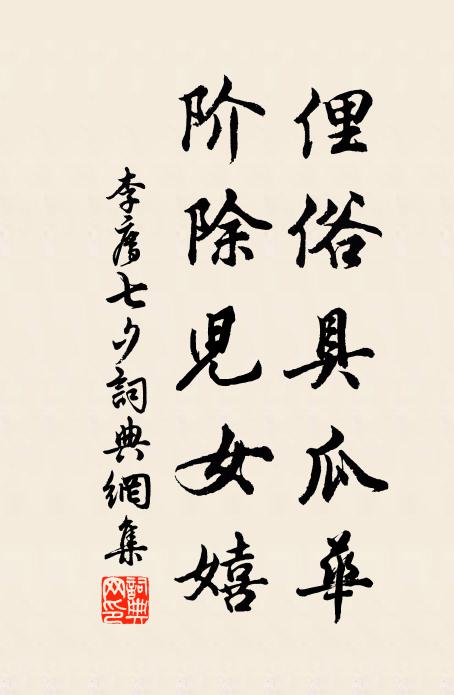 俚俗具瓜華
阶除兒女嬉
李廌七夕詞典網集
詞典